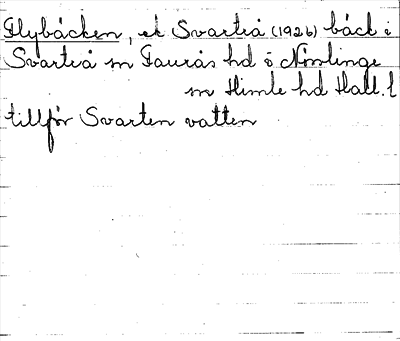 Flybäcken, ek Svarteå (1926) bäck i
Svarteå sn Faurås hd o Nösslinge
sn Himle hd Hall. l
tillför Svarten vatten